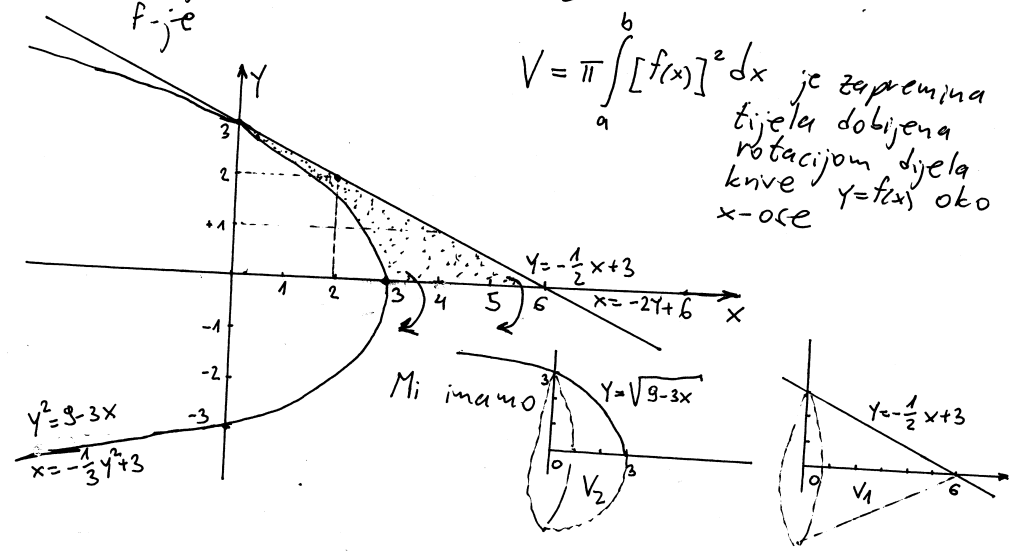 f-je
V = π ∫ₐᵇ [f(x)]² dx je zapremina
tijela dobijena
rotacijom dijela
krive y=f(x) oko
x-ose
Y
3
2
+1
1
2
3
4
5
6
X
-1
-2
-3
Y=-1/2x+3
x=-2Y+6
y²=9-3x
x=-1/3y²+3
Mi imamo
3
Y=√9-3x
0
3
V₂
Y=-1/2x+3
0
V₁
6